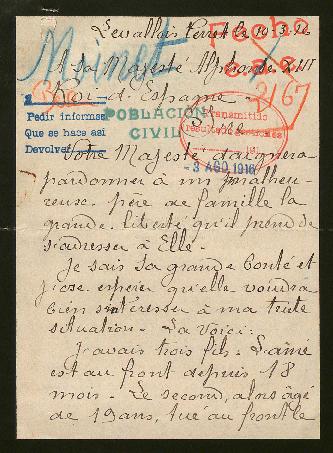 Levallois Perret le 10-3-16
Fecho
Minet
A Sa Majesté Alphonse XIII
Roi d'Espagne -
2167
Pedir informes
Que se haga así
Devolver
POBLACIÓN
CIVIL
Transmitido
Sire
3 AGO 1916
Votre Majesté daignera
pardonner à un malheu-
reux père de famille la
grande liberté qu'il prend de
s'adresser à Elle.
Je sais Sa grande bonté et
j'ose espérer qu'elle voudra
bien s'intéresser à ma triste
situation. La voici:
J'avais trois fils. L'aîné
est au front depuis 18
mois. Le second, alors âgé
de 19 ans, tué au front le